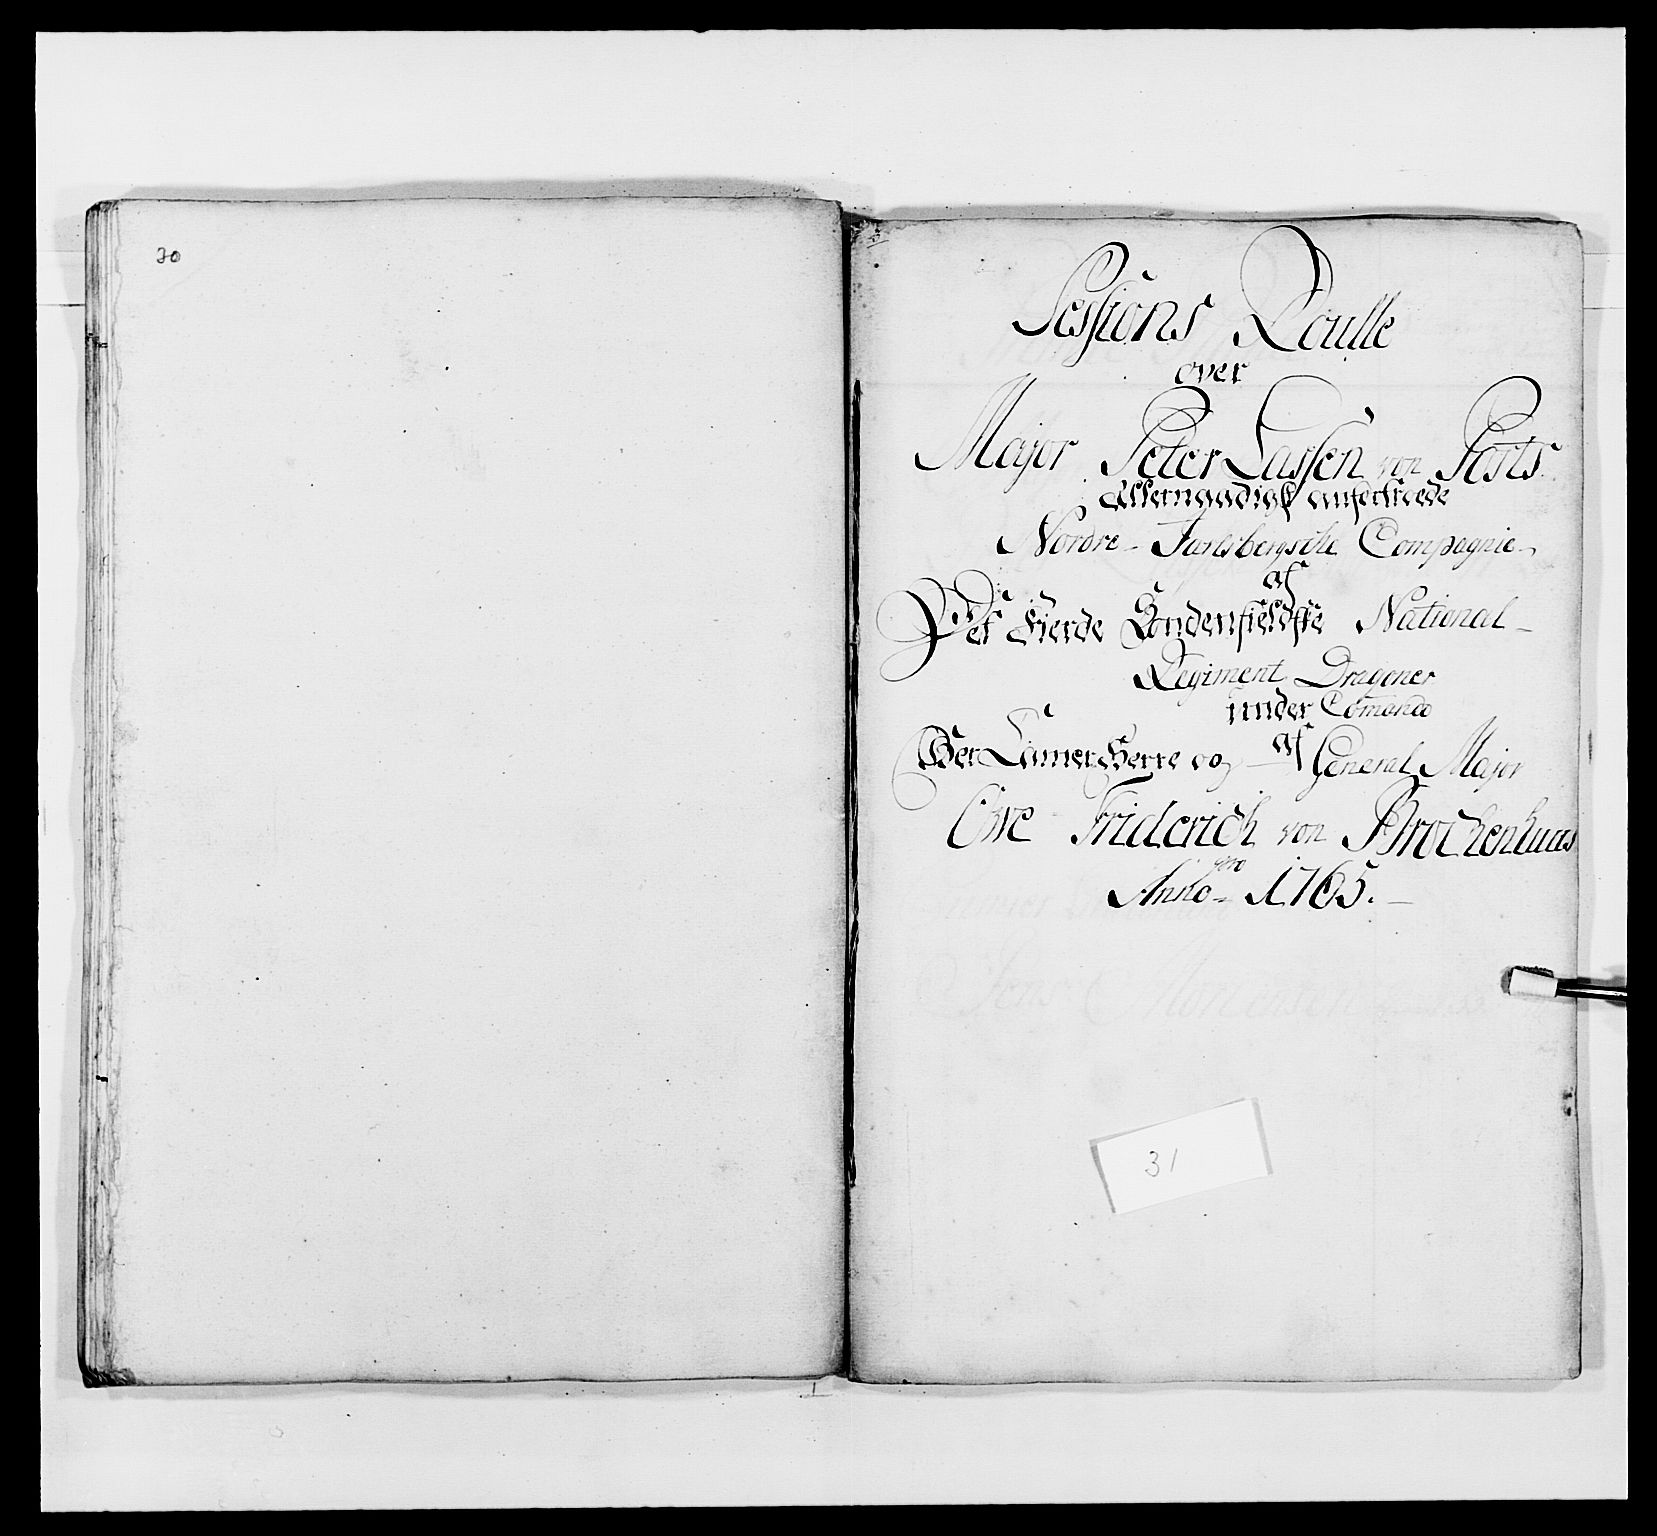 30
Sessions Roulle
over
Major Peter Lassen von Posts
Allernaadigst anfortroede
Nordre - Jarlsbergsche Compagnie
af
Det Fierde Søndenfieldske National
Regiment Dragoner
under Comando
af
Her Camer Herre og General Major
Owe Friderich von Brochenhuus
pro
Anno - 1765.
31